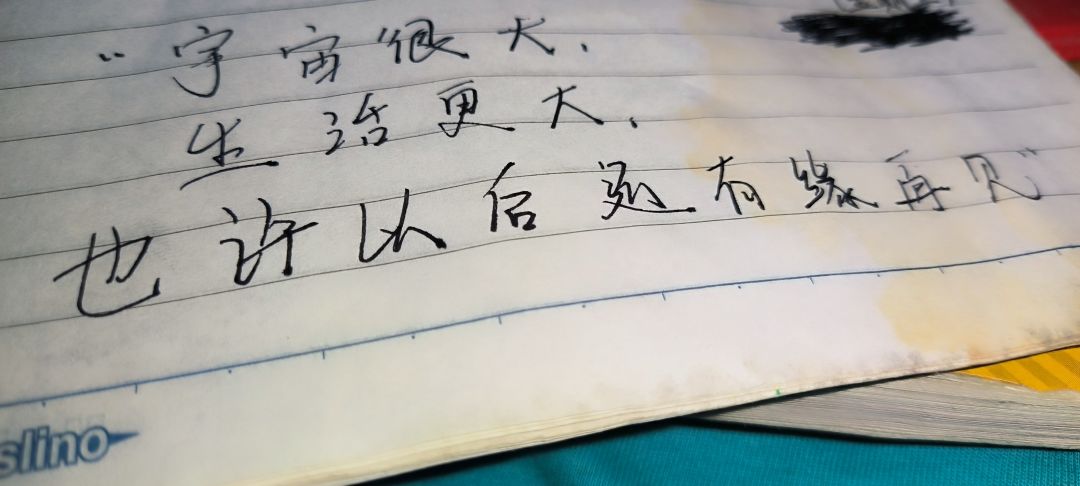 “宇宙很大,
生活更大,
也许以后还有缘再见”
slino